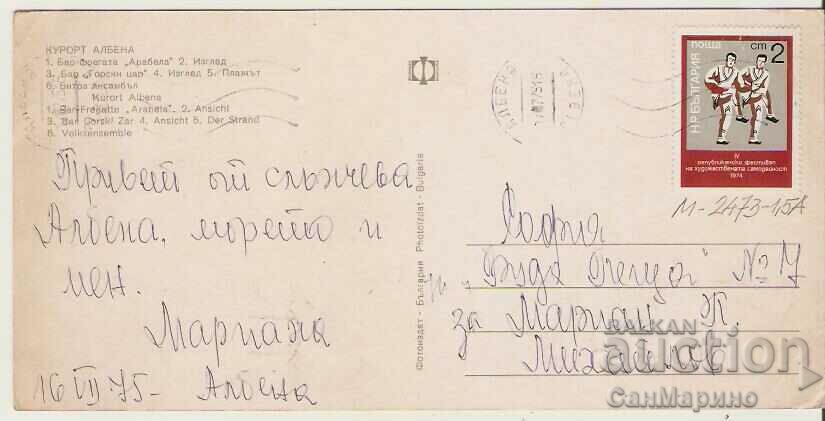 КУРОРТ АЛБЕНА
1. Бар-фрегата „Арабела" 2. Изглед
3. Бар „Горски цар" 4. Изглед 5. Плажът
6. Битов ансамбъл
Kurort Albena
1. Bar-Fregatte „Arabela". 2. Ansicht
3. Bar Gorski Zar 4. Ansicht 5. Der Strand
6. Volksensemble
Привет от слънчева
Албена, морето и
мен.
Мариана
16 VII 75 - Албена
Фотоиздат - България Photoizdat - Bulgaria
поща ст 2
Н.Р. БЪЛГАРИЯ
IV
републикански фестивал
на художествената самодейност
1974
М-2473-15А
София
ул. „ №
за Мариан К.
Михайлов
BALKAN
auction
СанМарино